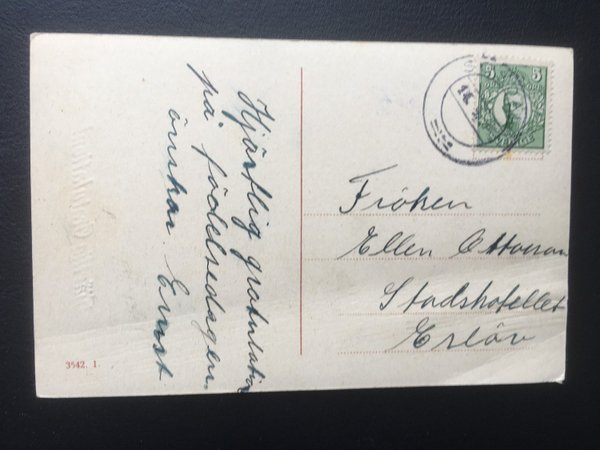 Hjärtlig gratulation
på födelsedagen.
önskar. Ernst
5 5
Fröken
Ellen Ottoson
Stadshotellet
Eslöv
3542. 1.